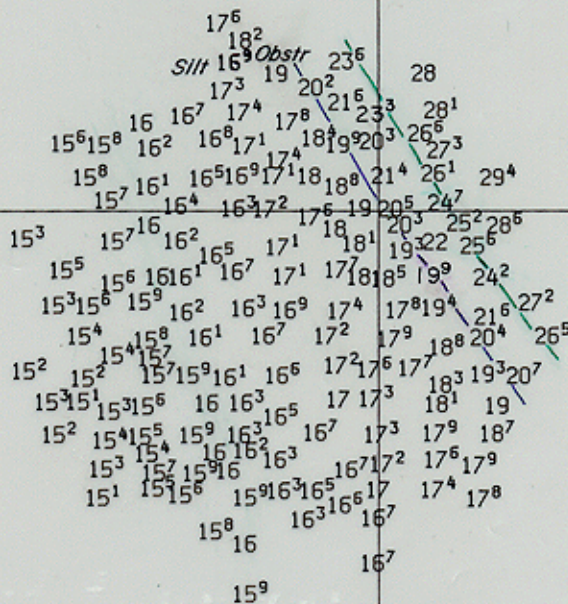 17⁶
18²
Silt 16⁹ Obstr 23⁶
19 28
17³ 20²
21⁶
16⁷ 17⁴ 17⁸ 23³ 28¹
16 26⁶
15⁶ 15⁸ 16² 16⁸ 17¹ 18⁴ 19⁹ 20³ 27³
17⁴
15⁸ 16¹ 16⁵ 16⁹ 17¹ 18 18⁸ 21⁴ 26¹ 29⁴
15⁷ 16⁴ 16³ 17² 17⁶ 19 20⁵ 24⁷
15³ 15⁷ 16 16² 17¹ 18 18¹ 20³ 25² 28⁶
16⁵ 19³ 22 25⁶
15⁵ 15⁶ 16 16¹ 16⁷ 17¹ 17⁷ 18 18⁵ 19⁹ 24²
15³ 15⁶ 15⁹ 16² 16³ 16⁹ 17⁴ 17⁸ 19⁴ 21⁶ 27²
15⁴ 15⁸ 16¹ 16⁷ 17² 17⁹ 18⁸ 20⁴ 26⁵
15⁴ 15⁷
15² 15² 15⁷ 15⁹ 16¹ 16⁶ 17² 17⁶ 17⁷ 18³ 19³ 20⁷
15³ 15¹ 15³ 15⁶ 16 16³ 16⁵ 17 17³ 18¹ 19
15² 15⁴ 15⁵ 15⁹ 16³ 16⁷ 17³ 17⁹ 18⁷
15⁴ 16 16²
15³ 15⁷ 15⁹ 16 16³ 16⁷ 17² 17⁶ 17⁹
15¹ 15⁵ 15⁶ 15⁹ 16³ 16⁵ 17 17⁴ 17⁸
16⁶
15⁸ 16³ 16⁷
16
16⁷
15⁹